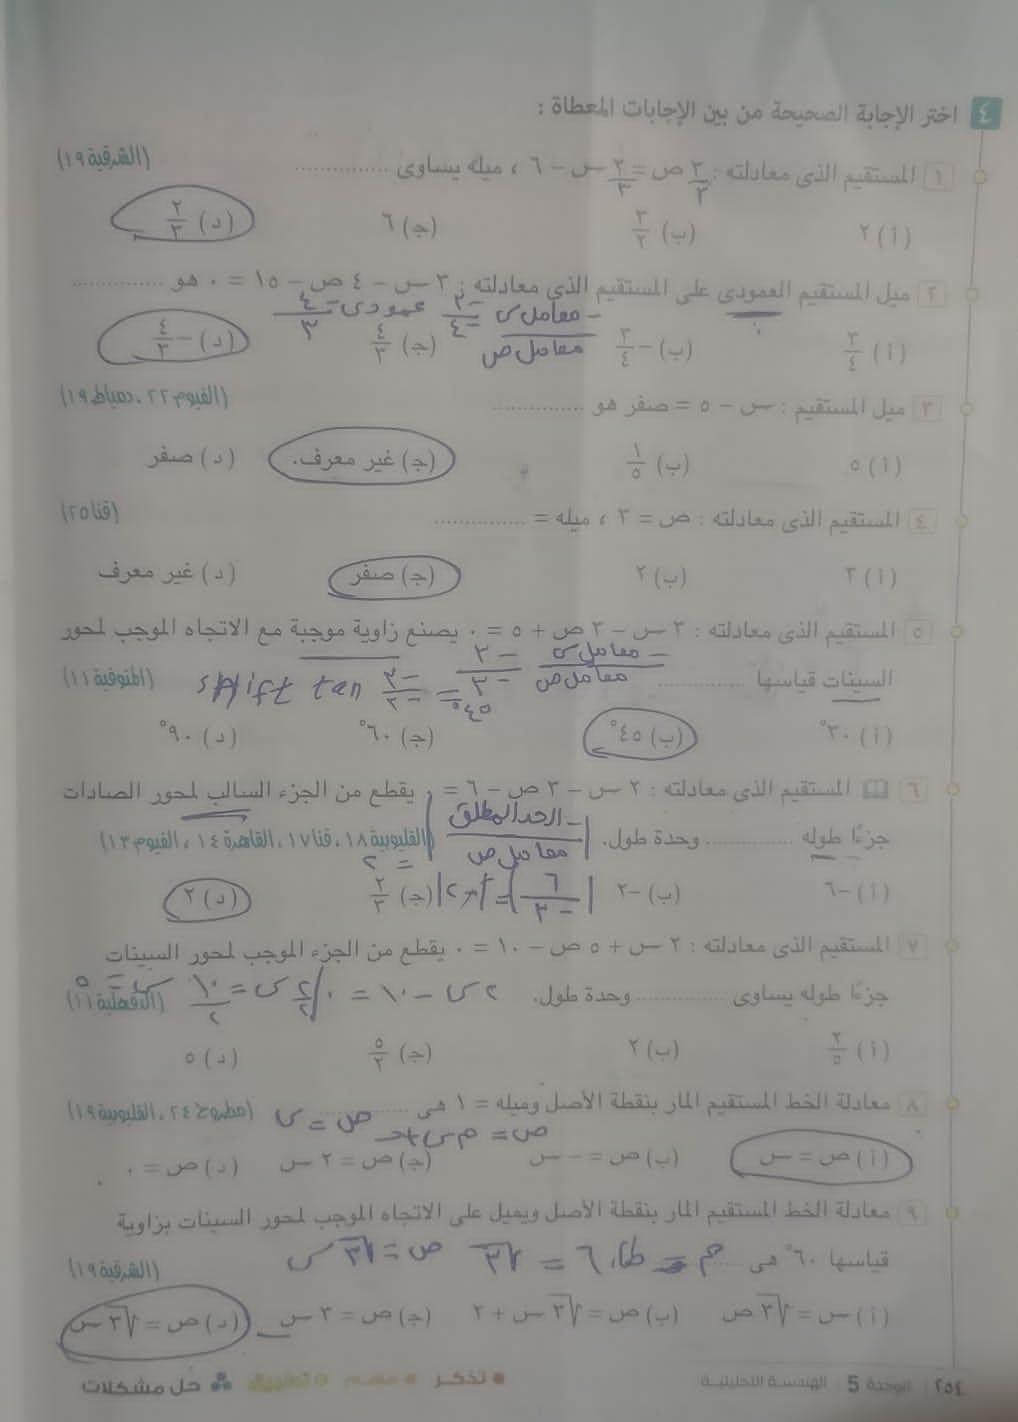 ٤ اختر الإجابة الصحيحة من بين الإجابات المعطاة :
١ المستقيم الذى معادلته : ٣ ص = ٢ س - ٦ ، ميله يساوى ............... (الشرقية ١٩)
٣ ٣
(أ) ٢ (ب) ٣/٢ (ج) ٦ (د) ٢/٣
٢ ميل المستقيم العمودى على المستقيم الذى معادلته : ٣ س - ٤ ص - ١٥ = ٠ هو ...............
- معامل س / معامل ص -٣/-٤ عمودى -٤/٣
(أ) ٣/٤ (ب) -٣/٤ (ج) ٤/٣ (د) -٤/٣
٣ ميل المستقيم : س - ٥ = صفر هو ............... (الفيوم ٢٢ ، دمياط ١٩)
(أ) ٥ (ب) ١/٥ (ج) غير معرف. (د) صفر
٤ المستقيم الذى معادلته : ص = ٣ ، ميله = ............... (قنا ٢٥)
(أ) ٣ (ب) ٢ (ج) صفر (د) غير معرف
٥ المستقيم الذى معادلته : ٣ س - ٣ ص + ٥ = ٠ يصنع زاوية موجبة مع الاتجاه الموجب لمحور
- معامل س / معامل ص -٣/-٣
السينات قياسها ............... shift tan -٣/-٣ = ٤٥° (المنوفية ١١)
(أ) ٣٠° (ب) ٤٥° (ج) ٦٠° (د) ٩٠°
٦ المستقيم الذى معادلته : ٢ س - ٣ ص - ٦ = ٠ يقطع من الجزء السالب لمحور الصادات
|- الحد المطلق / معامل ص|
جزءًا طوله ............... وحدة طول. (القليوبية ١٨ ، قنا ١٧ ، القاهرة ١٤ ، الفيوم ١٣)
|٦/-٣| = |-٢| = ٢
(أ) -٦ (ب) -٢ (ج) ٢/٣ (د) ٢
٧ المستقيم الذى معادلته : ٢ س + ٥ ص - ١٠ = ٠ يقطع من الجزء الموجب لمحور السينات
جزءًا طوله يساوى ............... وحدة طول. (الدقهلية ١١)
٢ س - ١٠ = ٠ ٢/٢ س = ١٠/٢ س = ٥
(أ) ٢/٥ (ب) ٢ (ج) ٥/٢ (د) ٥
٨ معادلة الخط المستقيم المار بنقطة الأصل وميله = ١ هى ............... (مطروح ٢٤ ، القليوبية ١٩)
ص = م س + جـ ص = س
(أ) ص = س (ب) ص = - س (ج) ص = ٢ س (د) ص = ٠
٩ معادلة الخط المستقيم المار بنقطة الأصل ويميل على الاتجاه الموجب لمحور السينات بزاوية
قياسها ٦٠° هى ............... (الشرقية ١٩)
م = ظا ٦٠ = √٣ ص = √٣ س
(أ) س = √٣ ص (ب) ص = √٣ س + ٢ (ج) ص = ٣ س (د) ص = √٣ س
٢٥٤ الوحدة 5 الهندسة التحليلية تذكر فهم تطبيق حل مشكلات